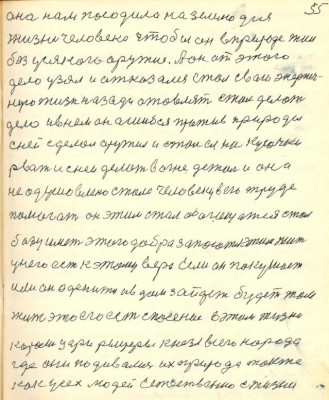 55
она нам посодила на землю для
жизни человека чтобы он в природе жил
без усякого оружие. А он от этого
дело узял и отказался стал сваю энергич-
ную жизнь назади отовлят стал делат
дело и в нем он ошибся против природы
с ней сделал оружия и стал ея на кусочки
рват и с ней делат вогне детал и она
неодушовлено стала человеку в его труде
помогат он этим стал обагащатся стал
базу имет этого добра запасат этим жит
у него ест к этому вера если он покушает
или он оденит и в дом зайдет будет там
жит это его ест спасение в этом жизни
цари рицари князя всего народа
где они подивалис их природа также
как усех людей естественно с жизни